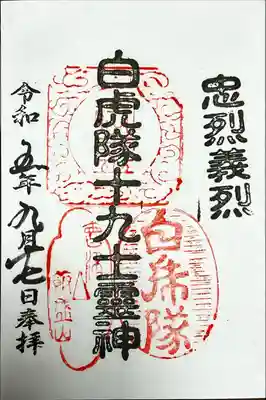 忠烈義烈
白虎隊十九士靈神
白虎隊
飯盛山
令和五年九月七日奉拝